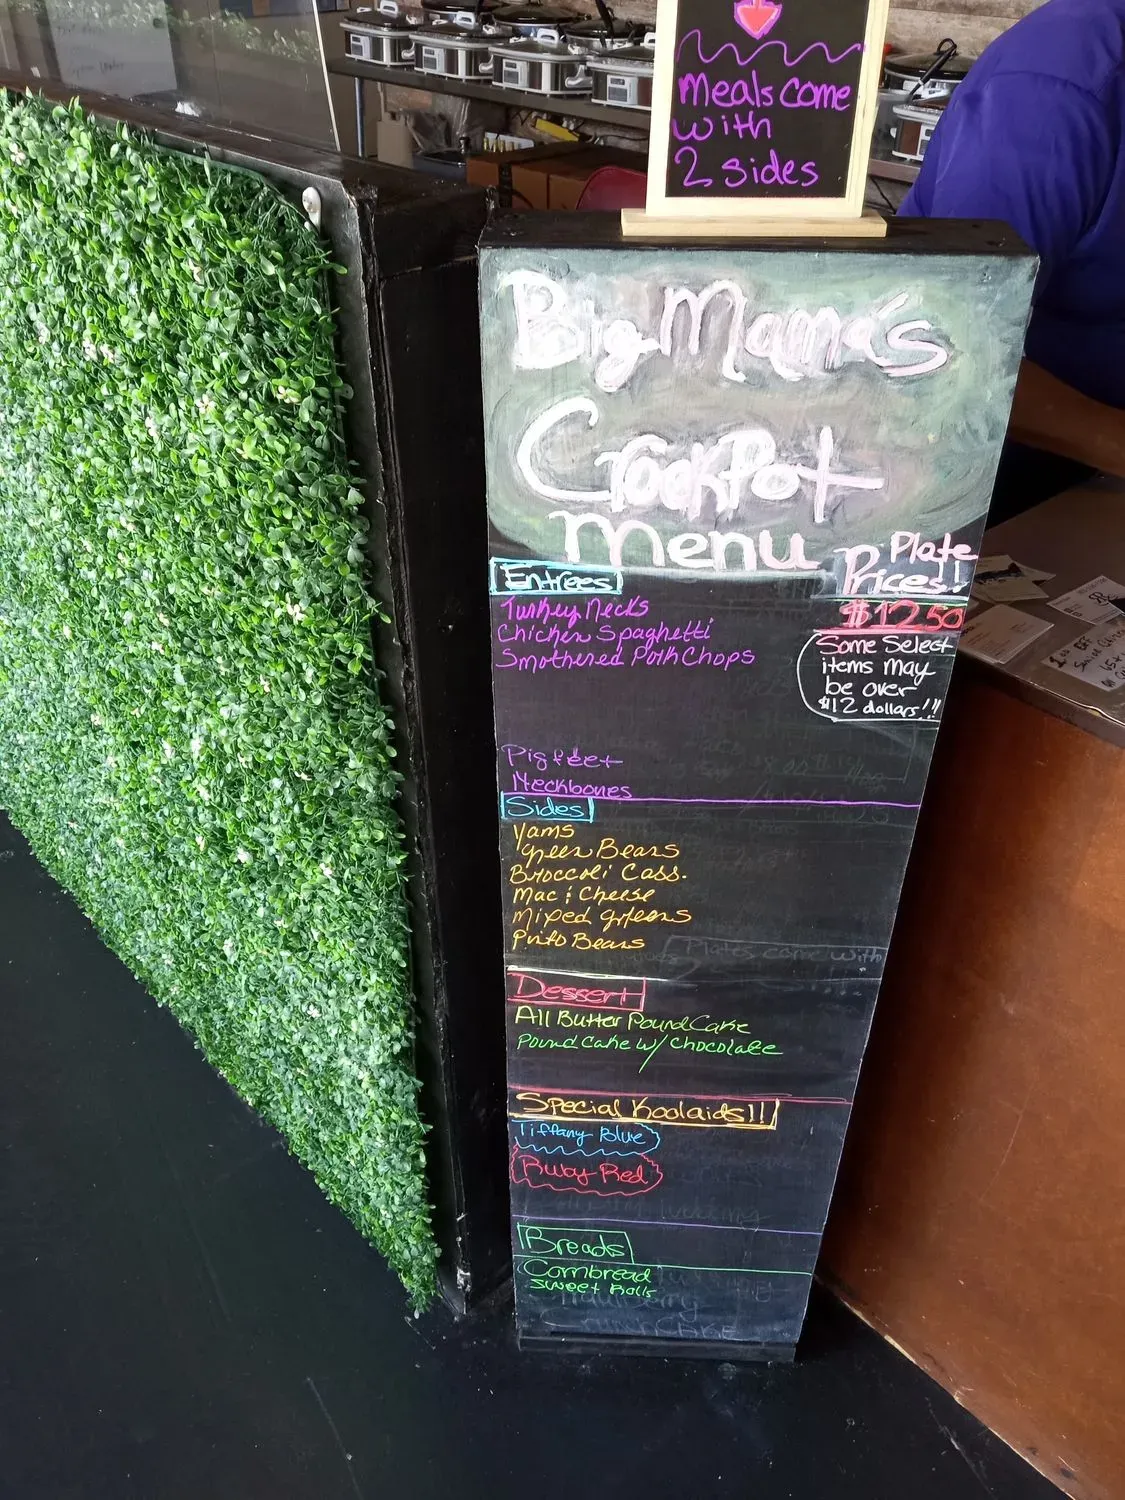 meals come
with
2 sides
Big Mama's
CrockPot
Menu
Plate
Prices!!
$12.50
Some Select
items may
be over
$12 dollars!!!
Entrees
Turkey Necks
Chicken Spaghetti
Smothered Pork Chops
Pig feet
Neckbones
Sides
Yams
Green Beans
Broccoli Cass.
Mac & Cheese
Mixed greens
Pinto Beans
Plates come with
2
Dessert
All Butter Pound Cake
Pound Cake w/ Chocolate
Special Koolaids!!!
Tiffany Blue
Ruby Red
Breads
Cornbread
Sweet Rolls
CAKE